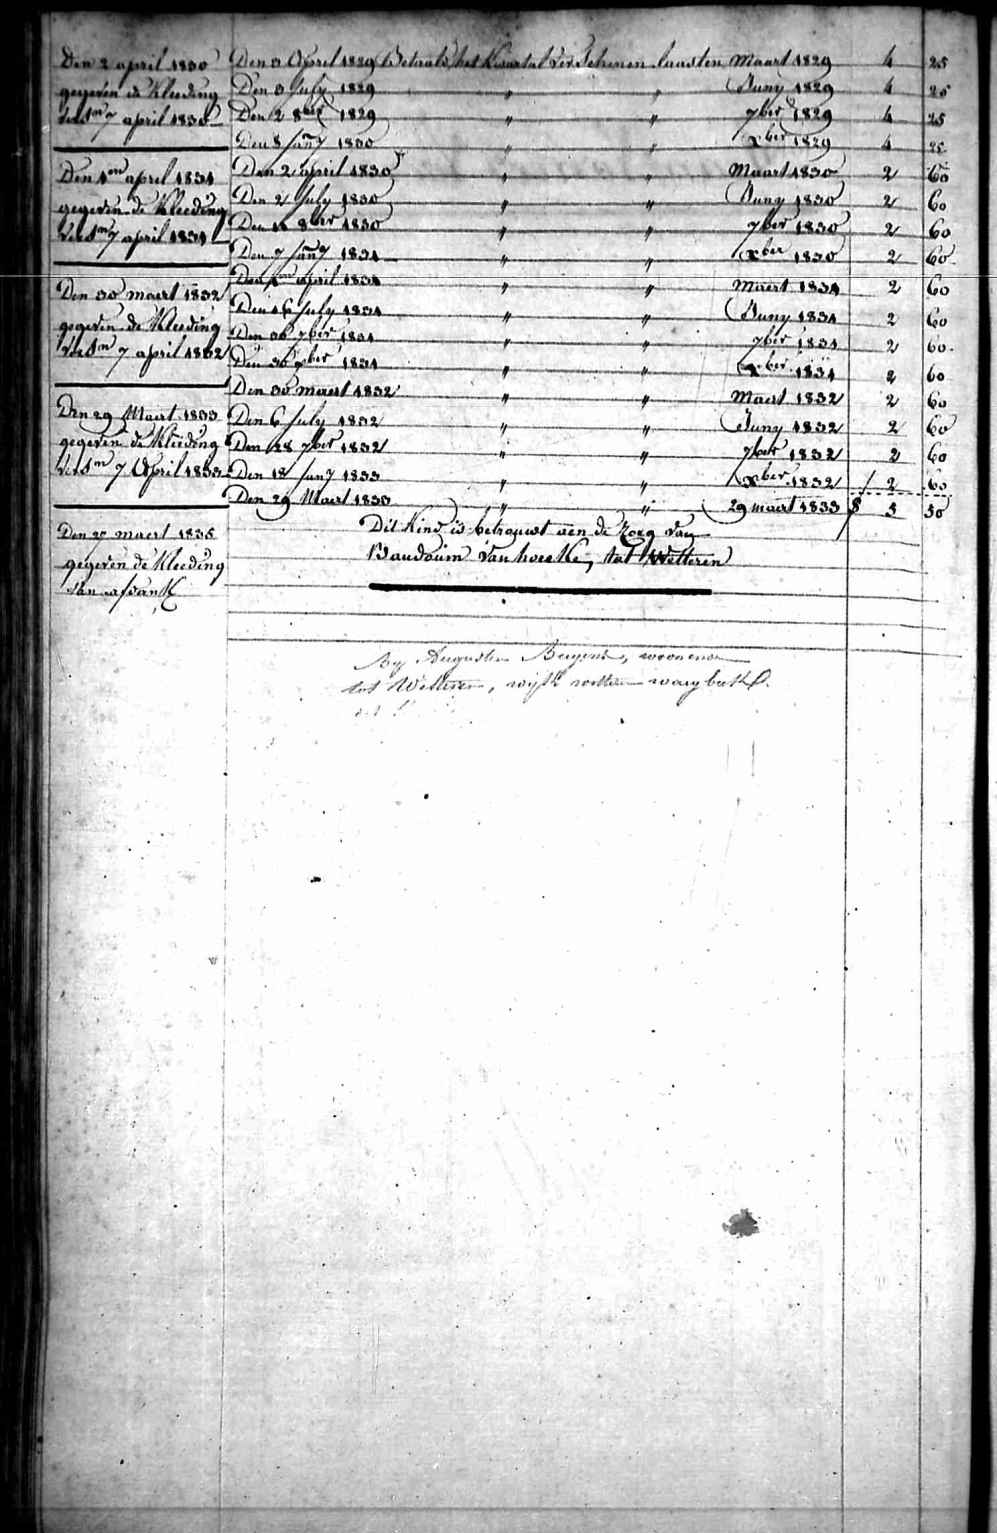 Den 2 april 1830
gegeven de Kleeding
7 april 1830
Den 1en april 1831
gegeven de Kleeding
7 april 1831
Den 30 maert 1832
gegeven de Kleeding
7 april 1832
Den 29 Maert 1833
gegeven de Kleeding
7 April 1833
Den maert 1835
gegeven de Kleeding
van afdank
Den 3 April 1829 Betaald het Kwartal verschenen laasten Maart 1829 4 25
Den 3 July 1829 " " Juny 1829 4 25
Den 2 8ber 1829 " " 7ber 1829 4 25
Den 8 Jany 1830 " " xber 1829 4 25
Den 2 april 1830 " " Maart 1830 2 60
Den 2 July 1830 " " Juny 1830 2 60
Den 8ber 1830 " " 7ber 1830 2 60
Den 7 Jany 1831 " " xber 1830 2 60
Den 1en april 1831 " " Maert 1831 2 60
Den 16 July 1831 " " Juny 1831 2 60
Den 30 7ber 1831 " " 7ber 1831 2 60
Den 30 xber 1831 " " xber 1831 2 60
Den 30 maert 1832 " " Maert 1832 2 60
Den 6 July 1832 " " Juny 1832 2 60
Den 28 7ber 1832 " " 7ber 1832 2 60
Den 18 Jany 1833 " " xber 1832 2 60
Den 29 Maert 1833 " " 29 maert 1833 5 50
Dit Kind is betrouwt aen de Zorg van
Baudouin Vanhoecke, tot Wetteren
By Augustin woonende
tot Wetteren, wijk